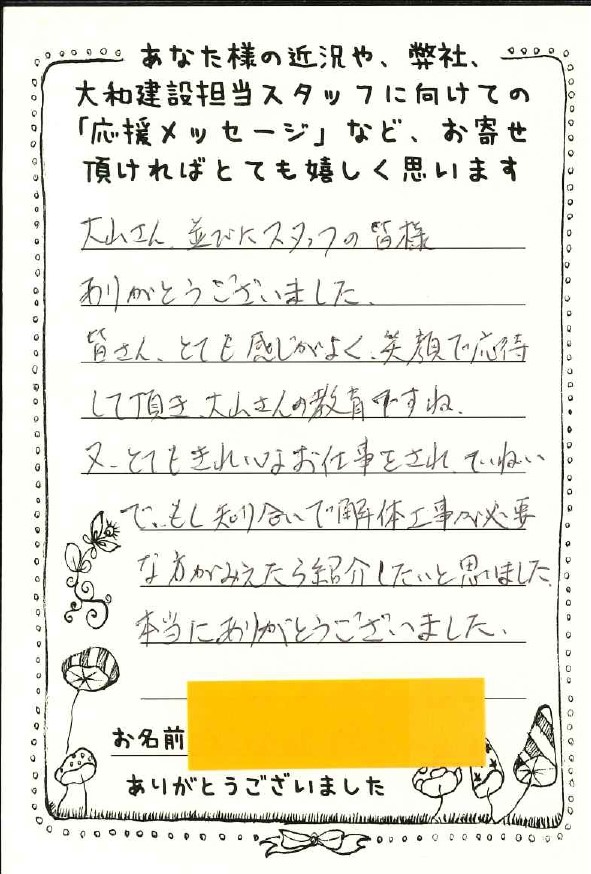 あなた様の近況や、弊社、
大和建設担当スタッフに向けての
「応援メッセージ」など、お寄せ
頂ければとても嬉しく思います
大山さん、並びにスタッフの皆様
ありがとうございました。
皆さん、とても感じがよく、笑顔で応待
して頂き、大山さんの教育ですね。
又、とてもきれいなお仕事をされ、ていねい
で、もし知り合いで解体工事が必要
な方がみえたら紹介したいと思いました。
本当にありがとうございました。
お名前
ありがとうございました